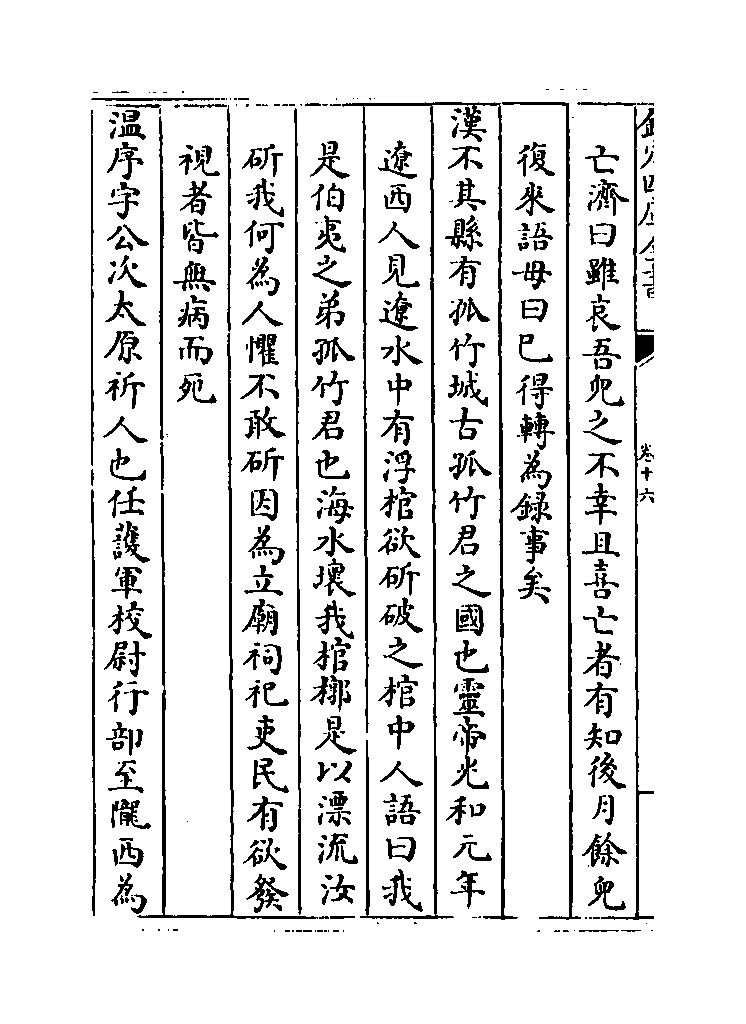 欽定四庫全書
卷十六
亡濟曰雖哀吾兒之不幸且喜亡者有知後月餘兒
復來語母曰已得轉為録事矣
漢不其縣有孤竹城古孤竹君之國也靈帝光和元年
遼西人見遼水中有浮棺欲斫破之棺中人語曰我
是伯夷之弟孤竹君也海水壞我棺槨是以漂流汝
斫我何為人懼不敢斫因為立廟祠祀吏民有欲發
視者皆無病而死
温序字公次太原祈人也任護軍校尉行部至隴西為